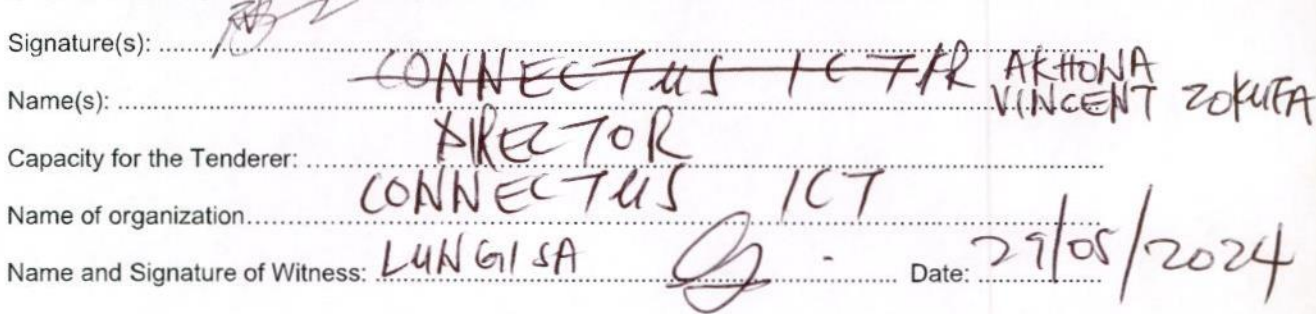 Signature(s): ..........
CONNECTUS ICT AKHONA
Name(s): .......... VINCENT ZOKUFA
Capacity for the Tenderer: DIRECTOR
Name of organization.......... CONNECTUS ICT
Name and Signature of Witness: LUNGISA .......... Date: 29/05/2024